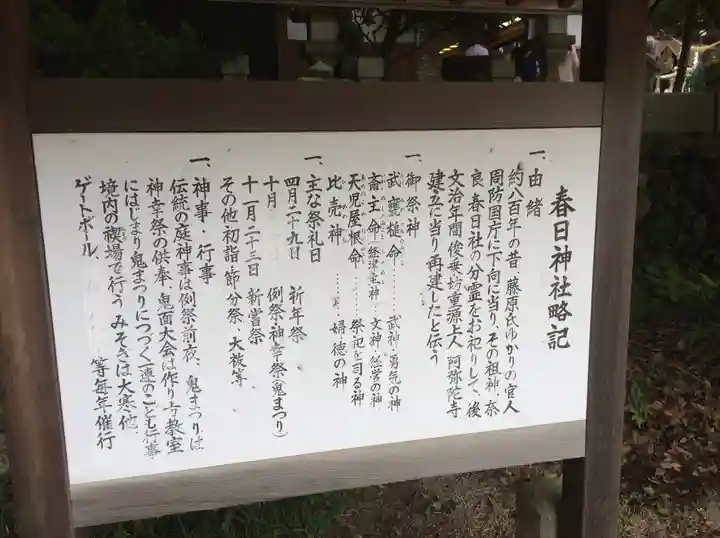 春日神社略記
一、由緒
約八百年の昔、藤原氏ゆかりの官人
周防国庁に下向に当り、その祖神、奈
良春日社の分霊をお祀りして、後
文治年間俊乗坊重源上人阿弥陀寺
建立に当り再建したと伝う
一、御祭神
武甕槌命……武神・勇気の神
斎主命(経津主神)…文神・経営の神
天児屋根命……祭祀を司る神
比売神……婦徳の神
一、主な祭礼日
四月二十九日 祈年祭
十月 例祭神幸祭(鬼まつり)
十一月二十三日 新嘗祭
その他初詣、節分祭、大祓等
一、神事・行事
伝統の庭神事は例祭前夜、鬼まつりは
神幸祭の供奉、鬼面大会は作り方教室
にはじまり鬼まつりにつづく一連のこども行事
境内の禊場で行うみそぎは大寒他、
ゲートボール 等毎年催行